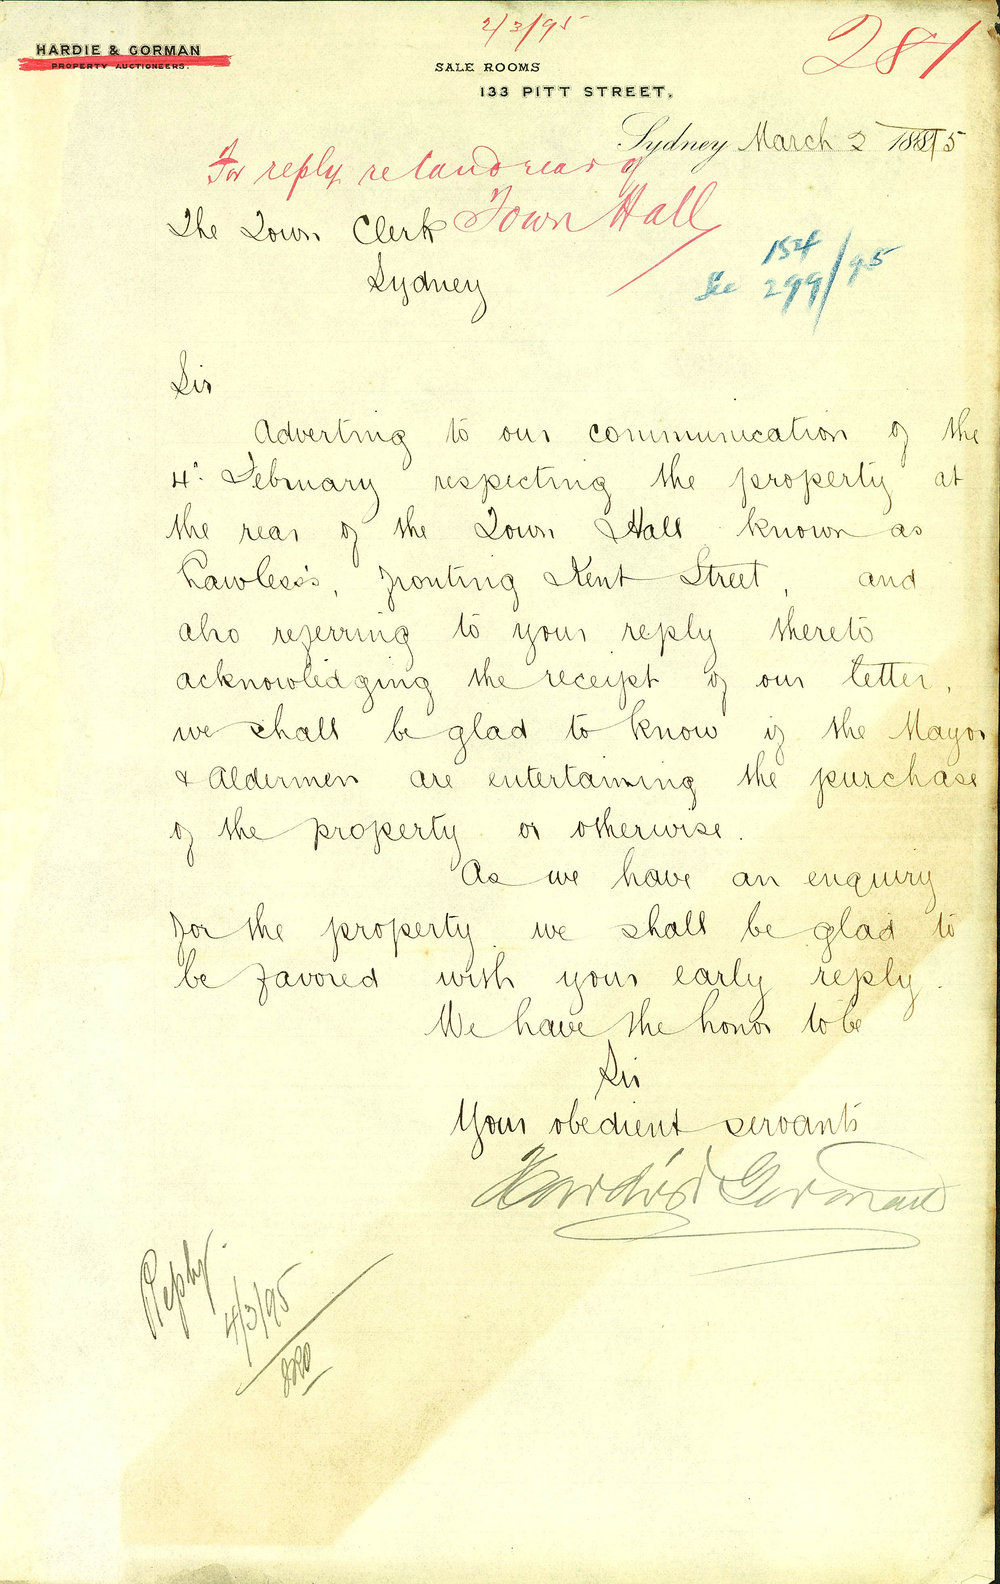 2/3/95
281
HARDIE & GORMAN
PROPERTY AUCTIONEERS.
SALE ROOMS
133 PITT STREET.
Sydney March 2 1895
For reply re land rear of
Town Hall
The Town Clerk
Sydney
154
See 299/95
Sir
Adverting to our communication of the
4th February respecting the property at
the rear of the Town Hall known as
Lawless's, fronting Kent Street, and
also referring to your reply thereto
acknowledging the receipt of our letter,
we shall be glad to know if the Mayor
& Aldermen are entertaining the purchase
of the property or otherwise.
As we have an enquiry
for the property we shall be glad to
be favored with your early reply.
We have the honor to be
Sir
Your obedient servants
Hardie & Gorman
Reply
4/3/95